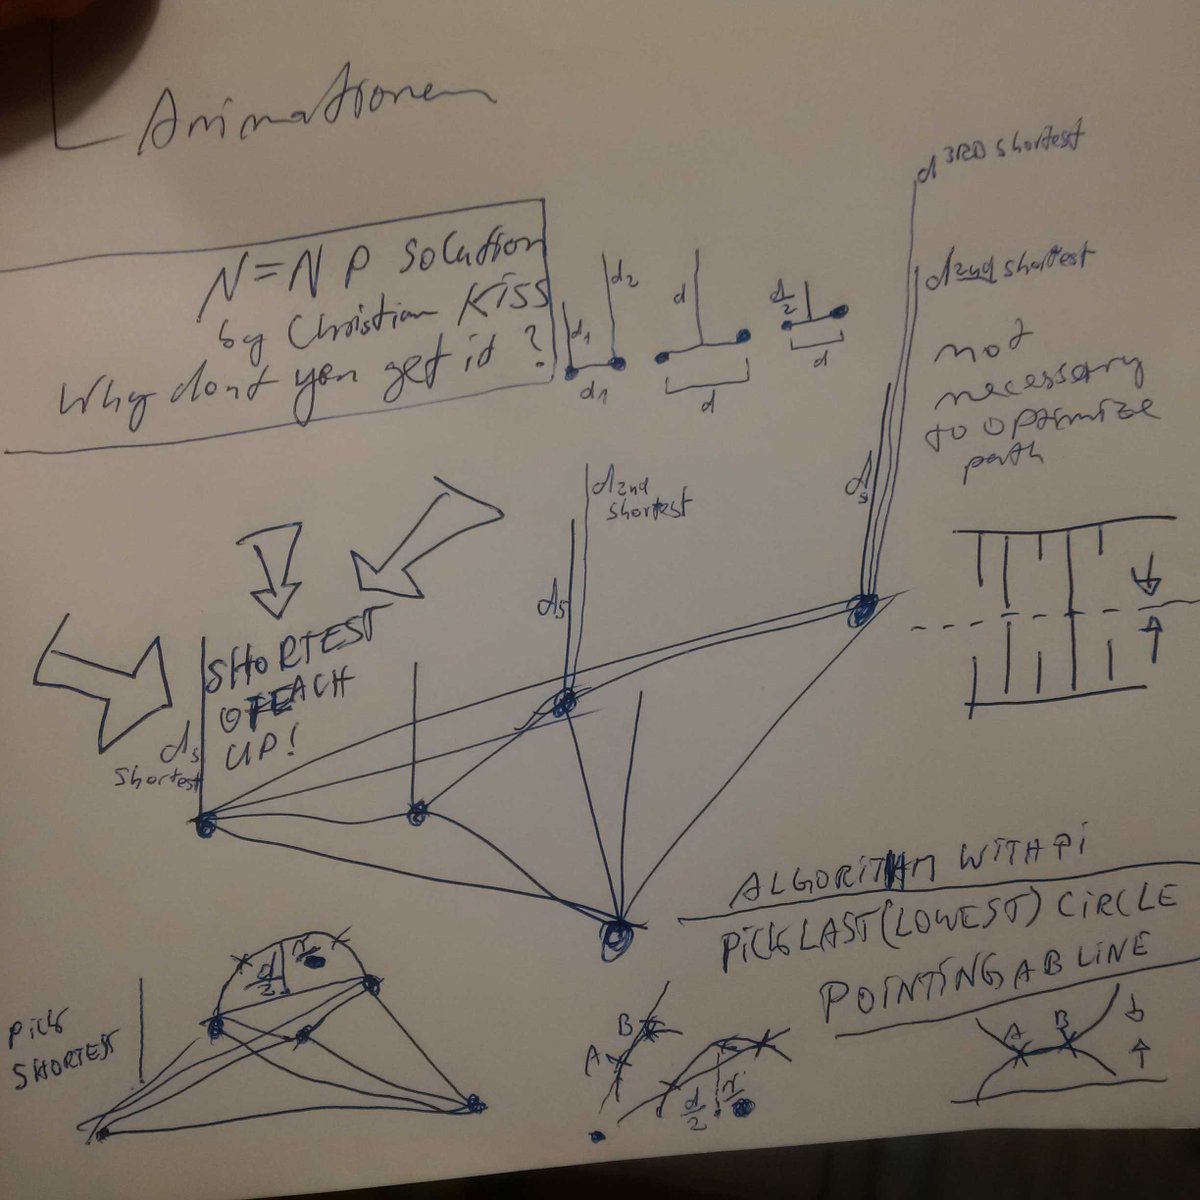 Animationen
N=NP solution
by Christian Kiss
Why dont you get it?
d1
d2
d1
d
d
d/2
d
d 3RD shortest
d 2nd shortest
not
necessary
to optimize
path
d 2nd
shortest
ds
ds
SHORTEST
OF EACH
UP!
ds
shortest
ALGORITHM WITH Pi
PICK LAST (LOWEST) CIRCLE
POINTING AB LINE
PICK
SHORTEST
d/2
r
B
A
d/2
r
A
B